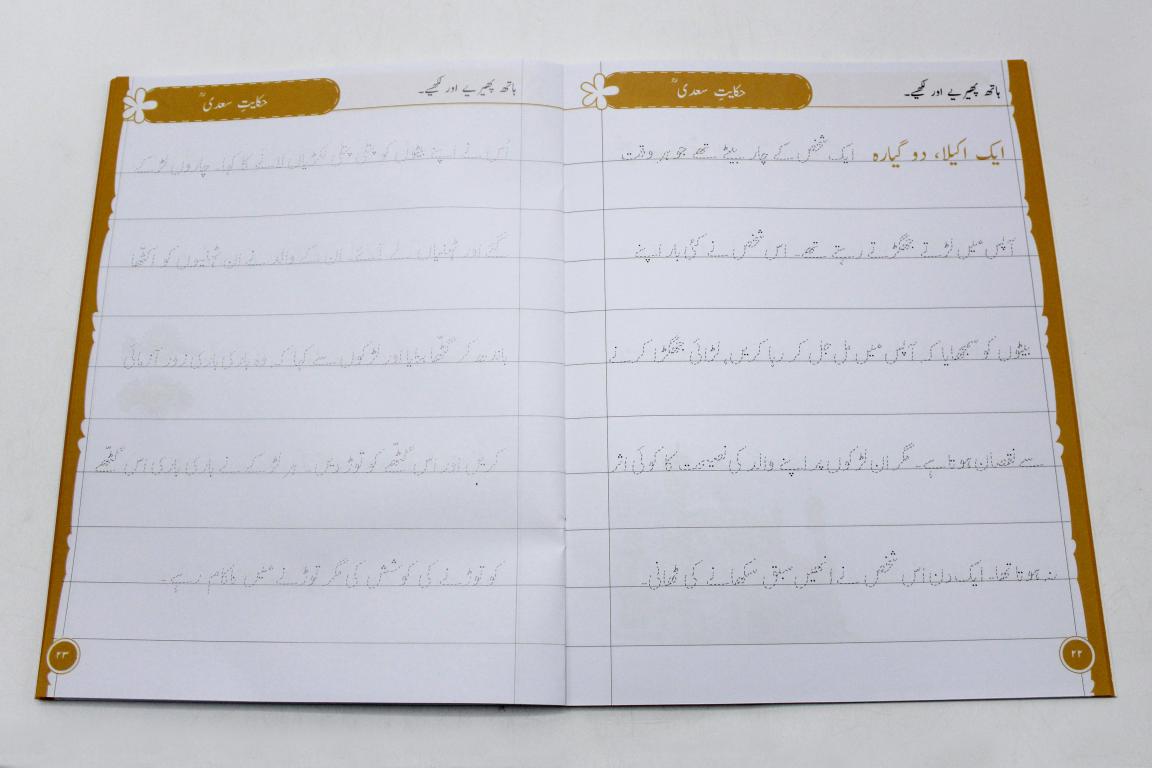 ہاتھ پھیریے اور لکھیے۔
حکایتِ سعدیؒ
ایک اکیلا، دو گیارہ ایک شخص کے چار بیٹے تھے جو ہر وقت
آپس میں لڑتے جھگڑتے رہتے تھے۔ اس شخص نے کئی بار اپنے
بیٹوں کو سمجھایا کہ آپس میں مل جل کر رہا کریں، لڑائی جھگڑا کرنے
سے نقصان ہوتا ہے۔ مگر ان لڑکوں پر اپنے والد کی نصیحت کا کوئی اثر
نہ ہوتا تھا۔ ایک دن اس شخص نے انھیں سبق سکھانے کی ٹھانی۔
۲۲
ہاتھ پھیریے اور لکھیے۔
حکایتِ سعدیؒ
اُس نے اپنے بیٹوں کو پتلی پتلی لکڑیاں لانے کا کہا۔ چاروں لڑکے
گئے اور ٹہنیاں لے آئے۔ ان کے والد نے ان ٹہنیوں کو اکٹھا
باندھ کر گٹھا بنایا اور لڑکوں سے کہا کہ وہ باری باری زور آزمائی
کریں اور اس گٹھے کو توڑ دیں۔ ہر لڑکے نے باری باری اس گٹھے
کو توڑنے کی کوشش کی مگر توڑنے میں ناکام رہے۔
۲۳